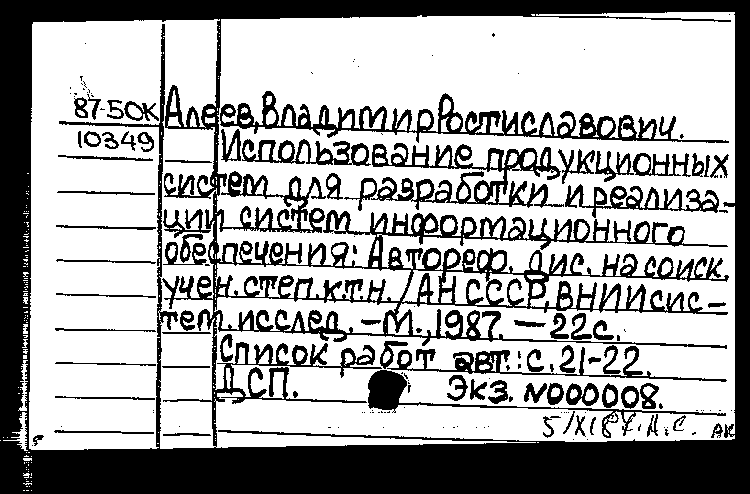 87-50К Алеев, Владимир Ростиславович.
10349 Использование продукционных
систем для разработки и реализа-
ции систем информационного
обеспечения: Автореф. дис. на соиск.
учен. степ. к.т.н. / АН СССР, ВНИИ сис-
тем. исслед. -М., 1987. - 22с.
Список работ авт.: с. 21-22.
ДСП. Экз. N000008.
5/XI 87. Д.С. АК